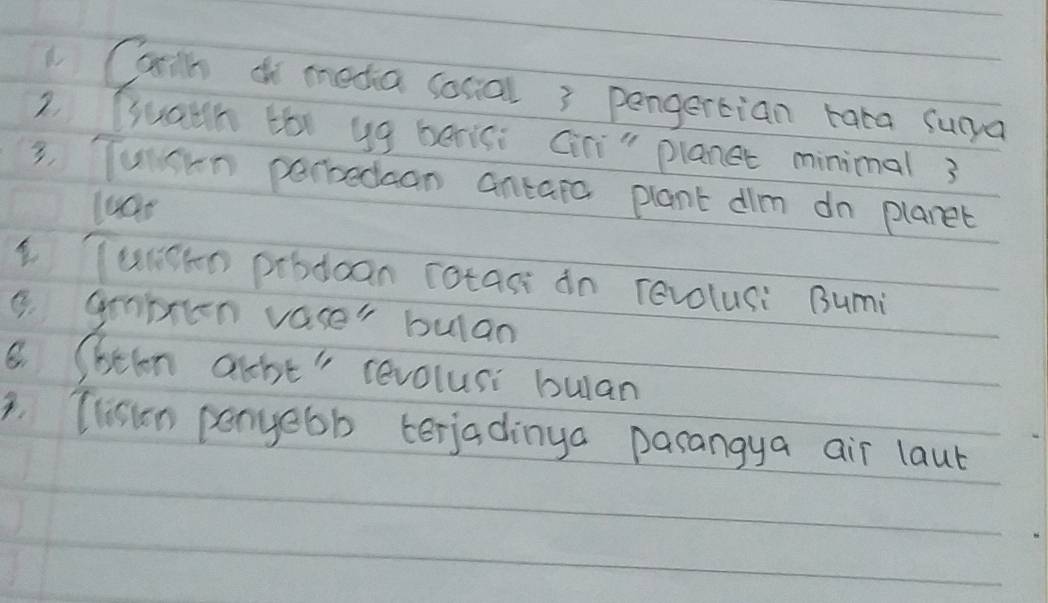 1. Carilh di media sosial 3 pengertian tata surya
2. Buatln tbl yg berisi ciri" planet minimal 3
3. Tuliskn perbedaan antara plant dlm dn planet
luar
4. Tuliskn prbdaan rotasi dn revolusi Bumi
5. gmbrkn vase" bulan
6. Sbtkn akbt" revolusi bulan
7. Tliskn penyebb terjadinya pasangya air laut